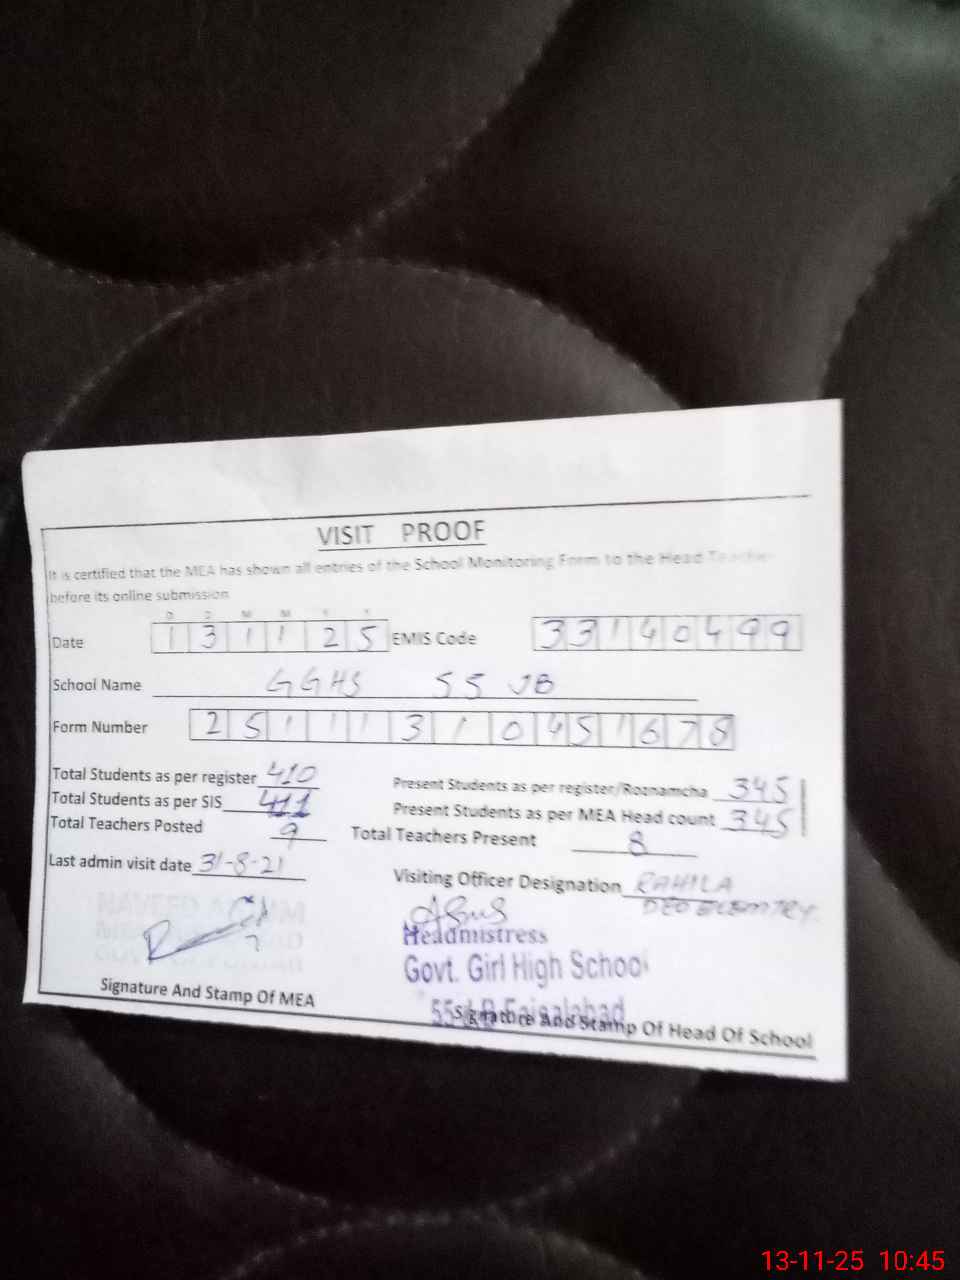 VISIT PROOF
It is certified that the MEA has shown all entries of the School Monitoring Form to the Head Teacher
before its online submission
D D M M Y Y
Date 1 3 1 1 2 5 EMIS Code 3 3 1 4 0 4 9 9
School Name GGHS 55 JB
Form Number 2 5 1 1 1 3 1 0 4 5 1 6 7 8
Total Students as per register 410 Present Students as per register/Roznamcha 345
Total Students as per SIS 411 Present Students as per MEA Head count 345
Total Teachers Posted 9 Total Teachers Present 8
Last admin visit date 31-8-21 Visiting Officer Designation RAHILA
DEO ELEMTRY
Headmistress
Govt. Girl High School
55 J.B Faisalabad
Signature And Stamp Of MEA Signature And Stamp Of Head Of School
13-11-25 10:45